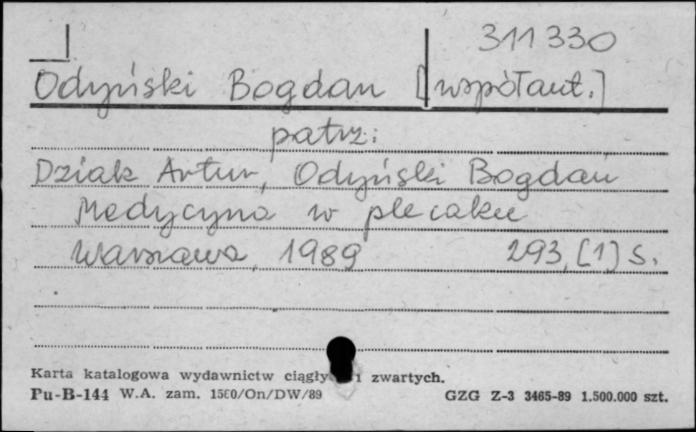 311330
Odyński Bogdan [współaut.]
patrz:
Dziak Artur, Odyński Bogdan
Medycyna w plecaku
Warszawa, 1989 293, [1] s.
Karta katalogowa wydawnictw ciągły i zwartych.
Pu-B-144 W.A. zam. 1560/On/DW/89 GZG Z-3 3465-89 1.500.000 szt.